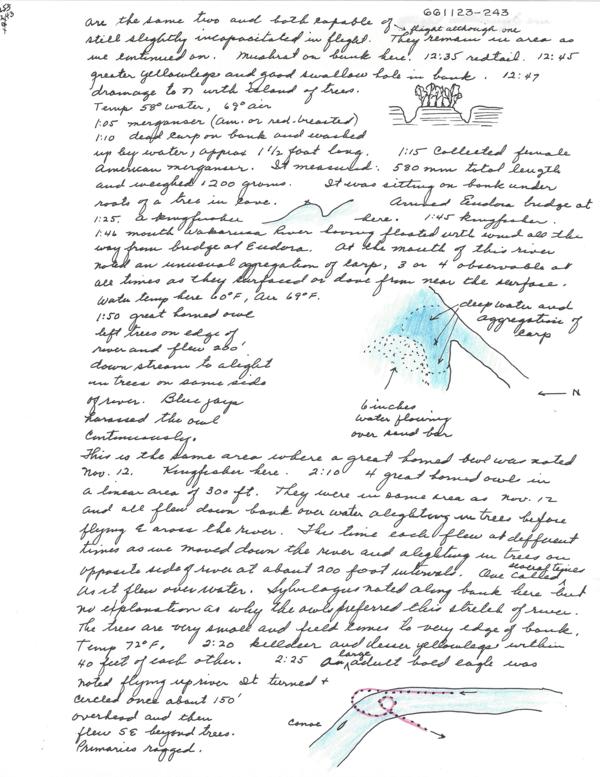 661123-243
are the same two and both capable of flight although one
still slightly incapacitated in flight. They remain in area as
we continued on. Muskrat on bank here. 12:35 redtail. 12:45
greater yellowlegs and good swallow hole in bank. 12:47
drainage to N with island of trees.
Temp 58° water, 69° air
1:05 merganser (Am. or red-breasted)
1:10 dead carp on bank and washed
up by water, approx 1 1/2 foot long. 1:15 Collected female
American merganser. It measured: 580 mm total length
and weighed 1200 grams. It was sitting on bank under
roots of a tree in cave. Arrived Eudora bridge at
1:25. A kingfisher here. 1:45 kingfisher.
1:46 mouth Wakarusa River having floated with wind all the
way from bridge at Eudora. At the mouth of this river
noted an unusual aggregation of carp, 3 or 4 observable at
all times as they surfaced or dove from near the surface.
Water temp here 60°F, Air 69°F.
1:50 great horned owl
left trees on edge of
river and flew 200'
down stream to alight
in trees on same side
of river. Blue jays
harassed the owl
continuously.
deep water and
aggregation of
carp
N
6 inches
water flowing
over sand bar
This is the same area where a great horned owl was noted
Nov. 12. Kingfisher here. 2:10 4 great horned owls in
a linear area of 300 ft. They were in same area as Nov. 12
and all flew down bank over water alighting in trees before
flying E across the river. This time each flew at different
times as we moved down the river and alighting in trees on
opposite side of river at about 200 foot intervals. One called several times
as it flew over water. Sylvilagus noted along bank here but
no explanation as why the owls preferred this stretch of river.
The trees are very small and field comes to very edge of bank.
Temp 72°F. 2:20 killdeer and lesser yellowlegs within
40 feet of each other. 2:25 An large adult bald eagle was
noted flying up river It turned +
circled once about 150'
overhead and then
flew SE beyond trees.
Primaries ragged.
canoe